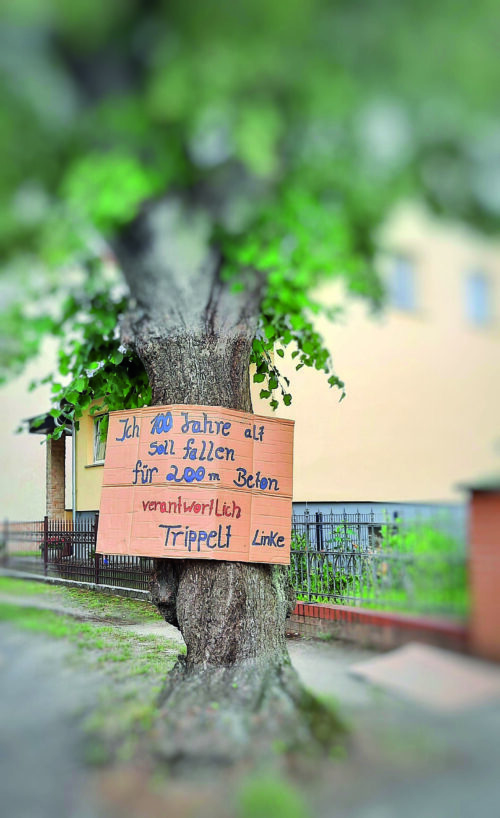 Ich 100 Jahre alt
soll fallen
für 200m Beton
verantwortlich
Trippelt Linke